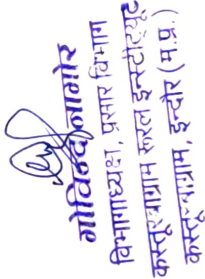 गोविन्द नागोर
विभागाध्यक्ष, प्रसार विभाग
कस्तूरबाग्राम रूरल इंस्टीट्यूट
कस्तूरबाग्राम, इन्दौर (म.प्र.)